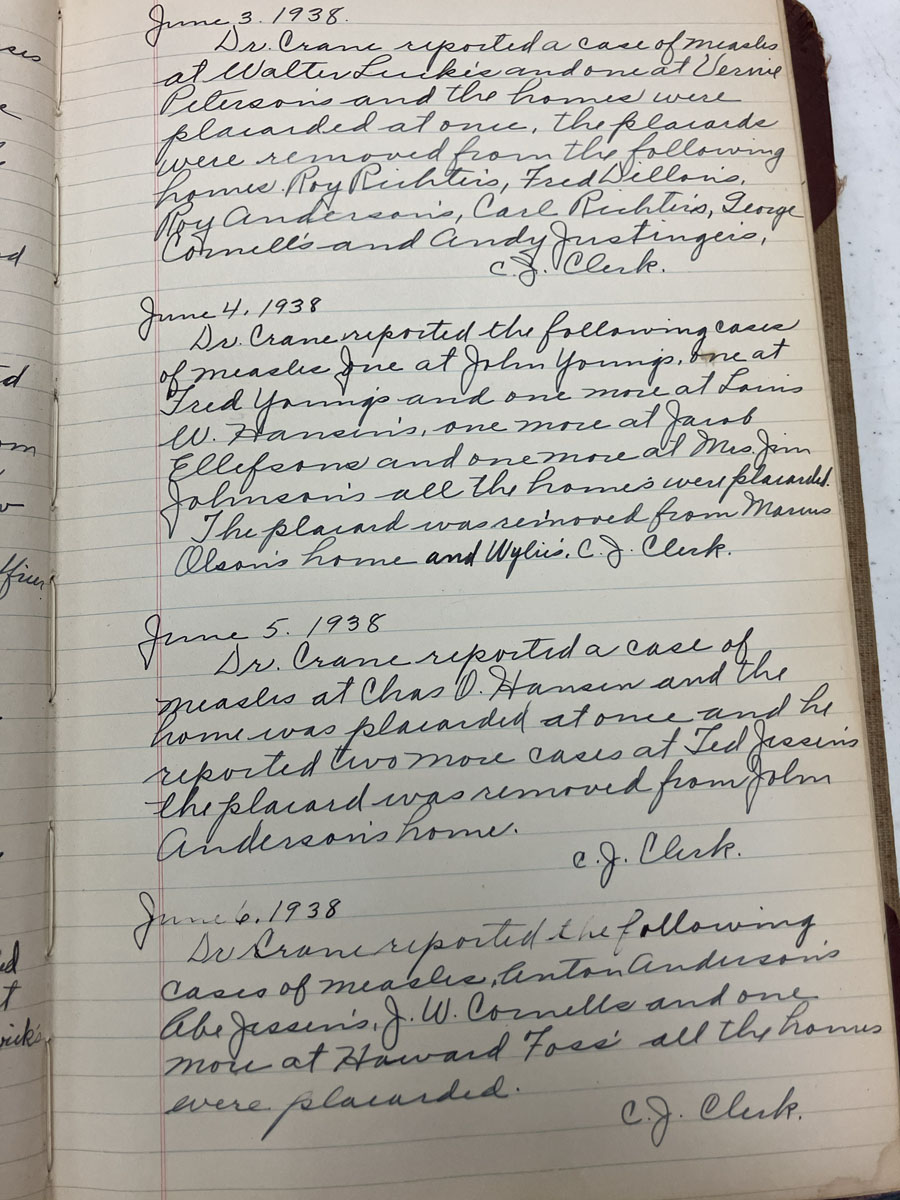 June 3. 1938.
Dr. Crane reported a case of measles
at Walter and one at Vernie
Peterson's and the homes were
placarded at once, the placards
were removed from the following
homes. Roy Richter's, Fred Dillon's,
Roy Anderson's, Carl Richter's, George
Cornell's and Andy Justingers,
C.J. Clerk.
June 4, 1938
Dr. Crane reported the following cases
of measles One at John Youngs, one at
Fred Young's and one more at Louis
W. Hansen's, one more at Jacob
Ellefsons and one more at Mrs. Jim
Johnson's all the homes were placarded.
The placard was removed from Marcus
Olson's home and Wylie's. C.J. Clerk.
June 5. 1938
Dr. Crane reported a case of
measles at Chas O. Hansen and the
home was placarded at once and he
reported two more cases at Ted Jessen's
the placard was removed from John
Anderson's home.
C.J. Clerk.
June 6. 1938
Dr Crane reported the following
cases of measles, Anton Anderson's
Abe Jessen's, J. W. Cornells and one
more at Howard Foss' all the homes
were placarded.
C.J. Clerk.